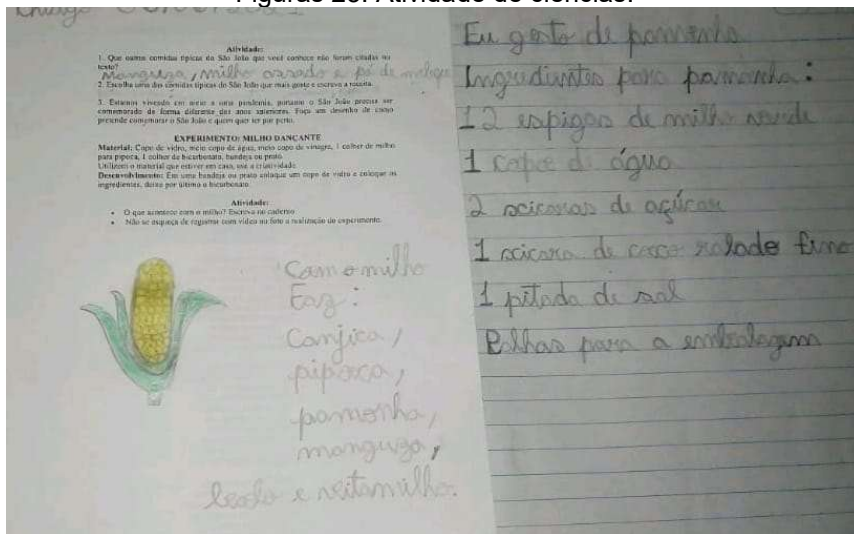 Figuras 25: Atividade de ciências.
Thiago
Atividade:
1. Que outras comidas típicas do São João que você conhece não foram citadas no
texto?
Manguza, milho assado e pé de moleque
2. Escolha uma das comidas típicas do São João que mais gosta e escreva a receita.
3. Estamos vivendo em meio a uma pandemia, portanto o São João precisa ser
comemorado de forma diferente dos anos anteriores. Faça um desenho de como
pretende comemorar o São João e quem quer ter por perto.
EXPERIMENTO: MILHO DANÇANTE
Material: Copo de vidro, meio copo de água, meio copo de vinagre, 1 colher de milho
para pipoca, 1 colher de bicarbonato, bandeja ou prato.
Utilizem o material que estiver em casa, use a criatividade.
Desenvolvimento: Em uma bandeja ou prato coloque um copo de vidro e coloque os
ingredientes, deixe por último o bicarbonato.
Atividade:
• O que acontece com o milho? Escreva no caderno
• Não se esqueça de registrar com vídeo ou foto a realização do experimento.
Com o milho
Faz:
Canjica,
pipoca,
pamonha,
manguza,
e
Eu gosto de pamonha
Ingredientes para pamonha:
12 espigas de milho verde
1 copo de água
2 xicaras de açúcar
1 xicara de coco ralado fino
1 pitada de sal
Palhas para a embalagem